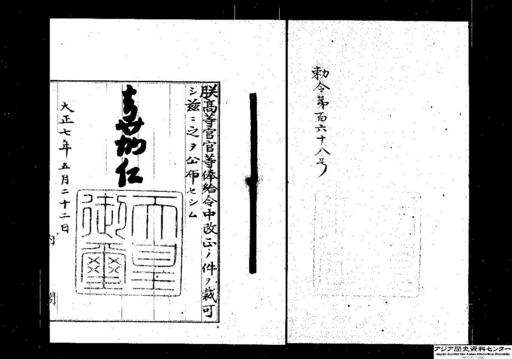 勅令第百六十八号
朕高等官官等俸給令中改正ノ件ヲ裁可
シ茲ニ之ヲ公布セシム
嘉仁
天皇御璽
大正七年五月二十二日
内閣
アジア歴史資料センター
Japan Center for Asian Historical Records